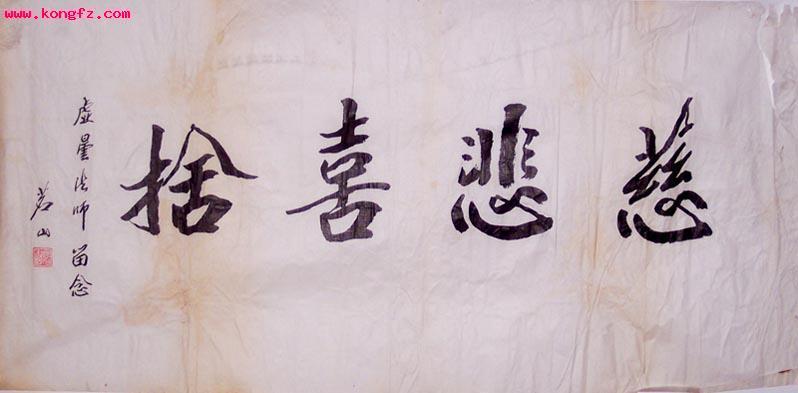 www.kongfz.com
慈悲喜捨
虚曇法师 留念
茗山